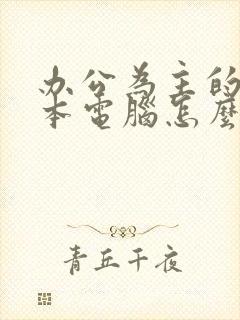 办公為主的
本電腦怎麼
青丘千夜